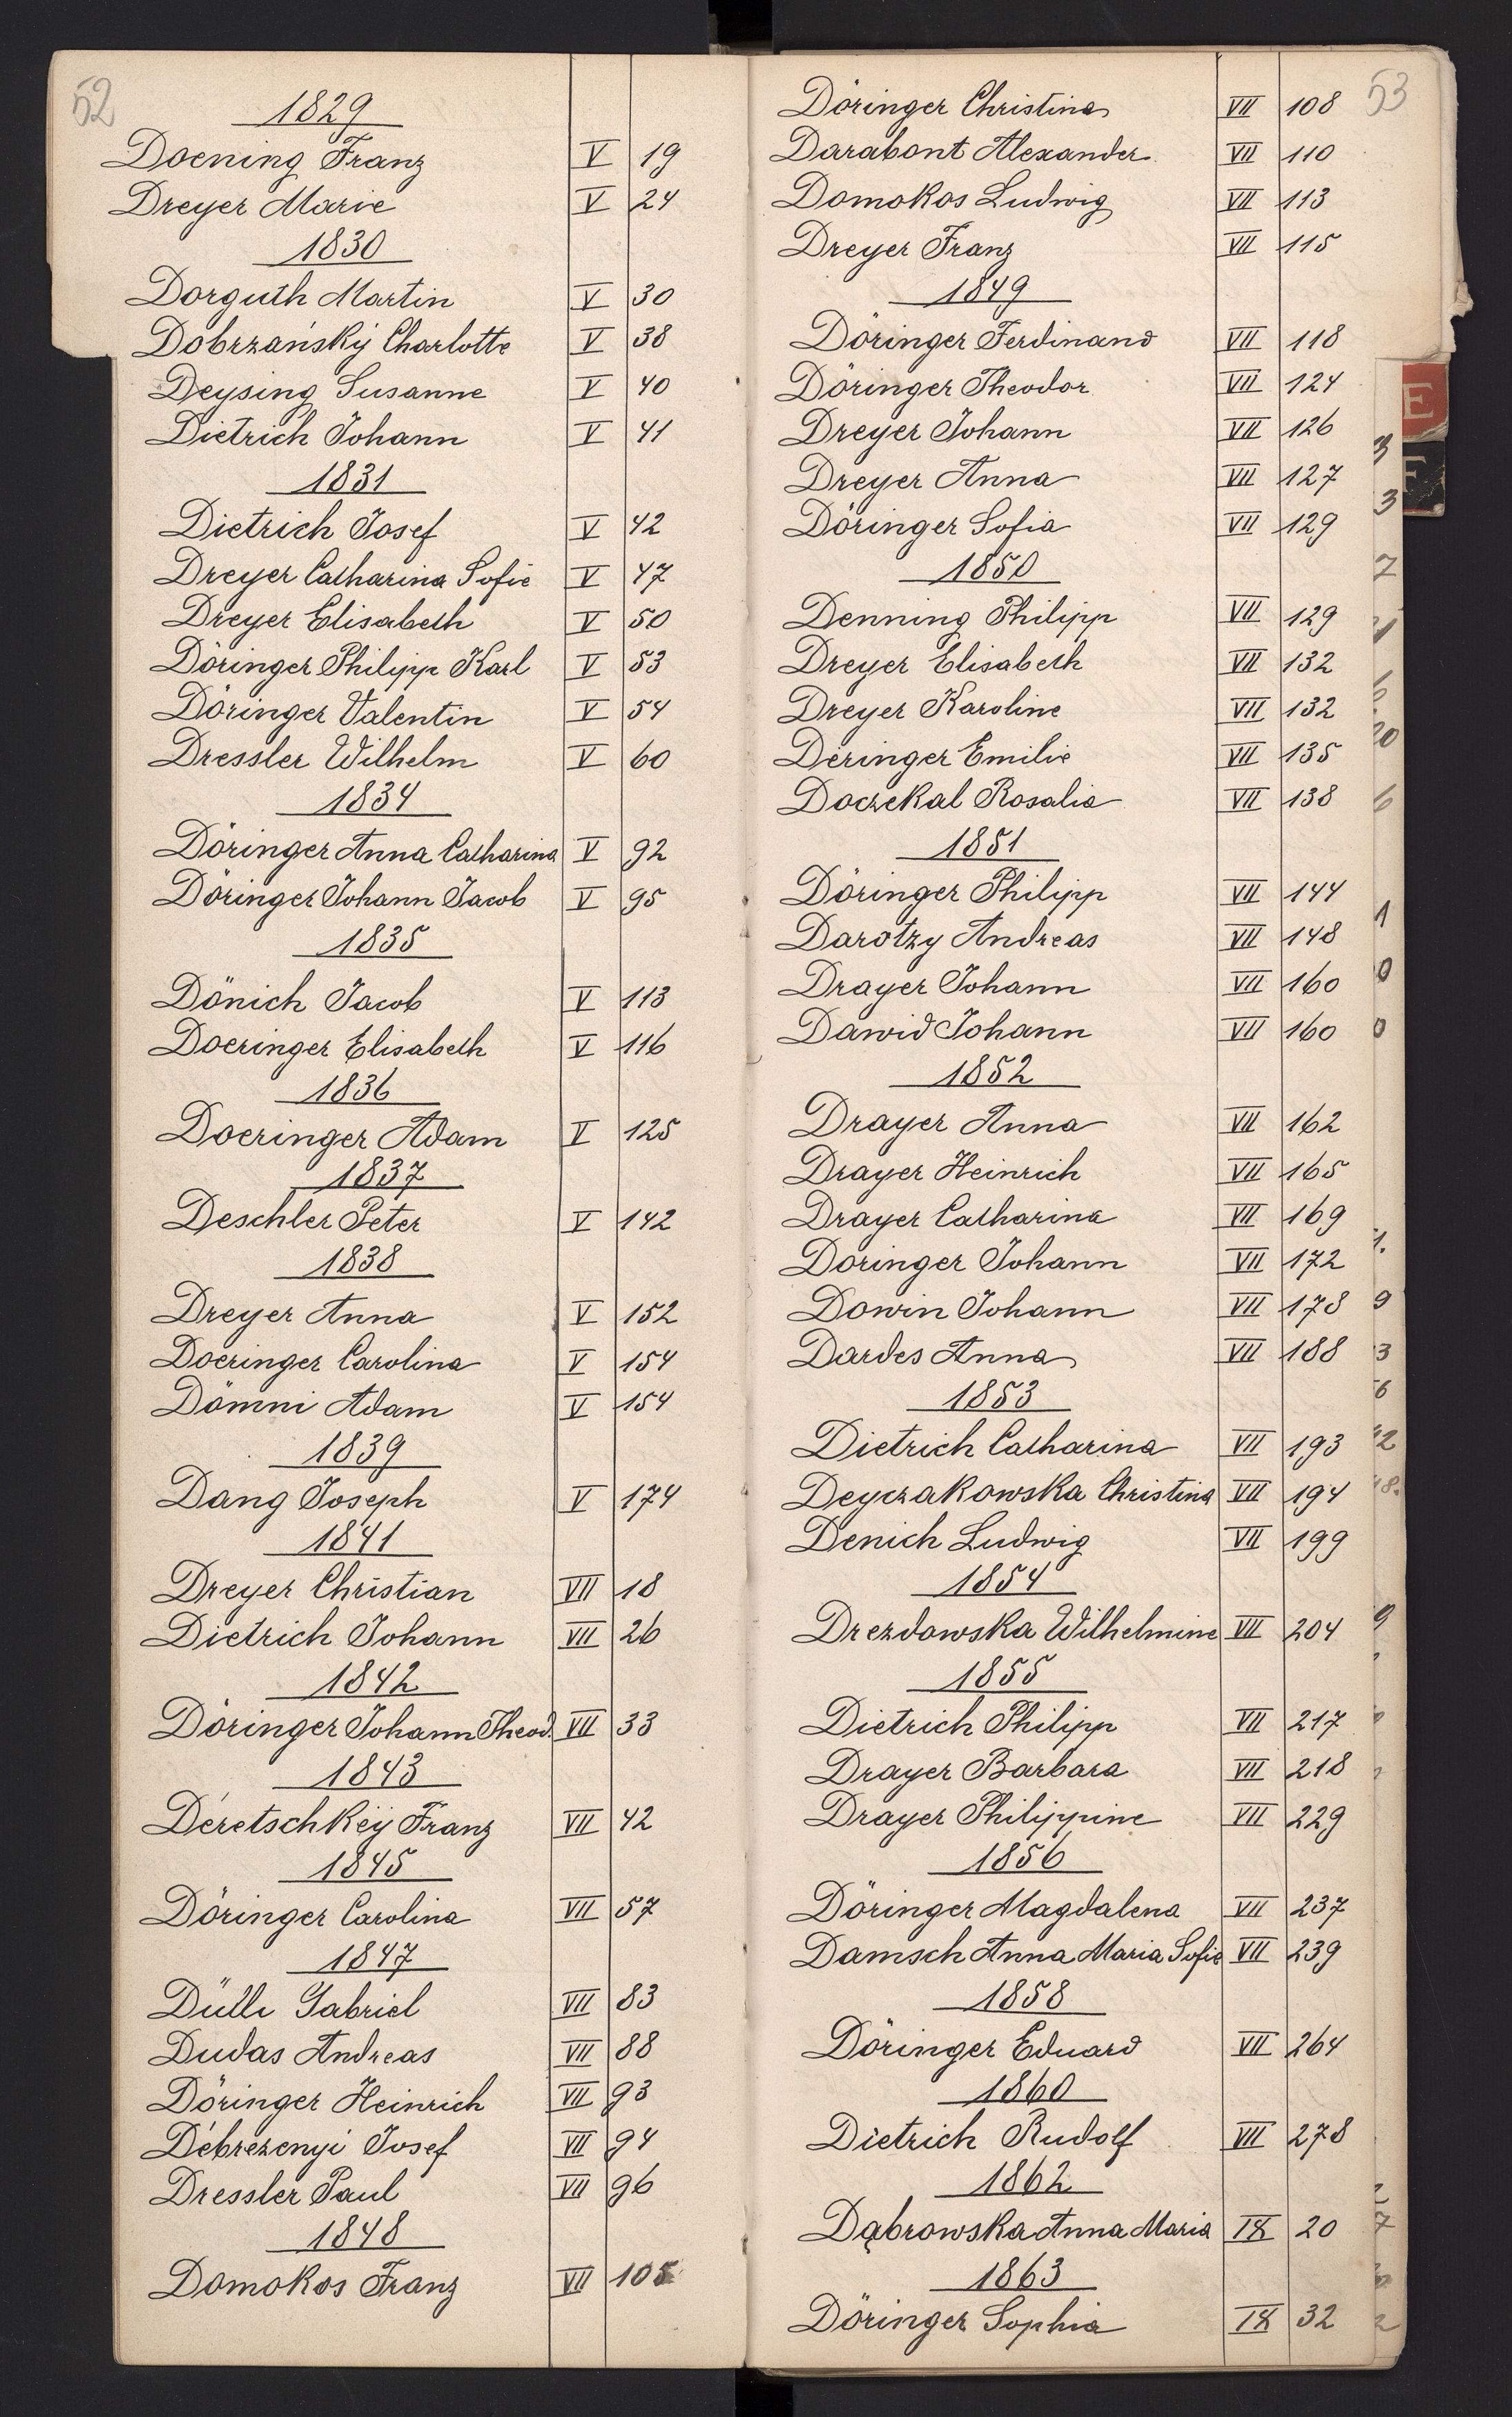 52
1829
Doening Franz V 19
Dreyer Marie V 24
1830
Dorguth Martin V 30
Dobrzański Charlotte V 38
Deysing Susanne V 40
Dietrich Johann V 41
1831
Dietrich Josef V 42
Dreyer Catharina Sofie V 47
Dreyer Elisabeth V 50
Döringer Philipp Karl V 53
Döringer Valentin V 54
Dressler Wilhelm V 60
1834
Döringer Anna Catharina V 92
Döringer Johann Jacob V 95
1835
Dönich Jacob V 113
Doeringer Elisabeth V 116
1836
Doeringer Adam V 125
1837
Deschler Peter V 142
1838
Dreyer Anna V 152
Doeringer Carolina V 154
Dömni Adam V 154
1839
Dang Joseph V 174
1841
Dreyer Christian VII 18
Dietrich Johann VII 26
1842
Döringer Johann Theod. VII 33
1843
Déretschkey Franz VII 42
1845
Döringer Carolina VII 57
1847
Dülli Gabriel VII 83
Dudas Andreas VII 88
Döringer Heinrich VII 93
Débrezenyi Josef VII 94
Dressler Paul VII 96
1848
Domokos Franz VII 105
53
Döringer Christina VII 108
Darabont Alexander VII 110
Domokos Ludwig VII 113
Dreyer Franz VII 115
1849
Döringer Ferdinand VII 118
Döringer Theodor VII 124
Dreyer Johann VII 126
Dreyer Anna VII 127
Döringer Sofia VII 129
1850
Denning Philipp VII 129
Dreyer Elisabeth VII 132
Dreyer Karoline VII 132
Deringer Emilie VII 135
Doczekal Rosalia VII 138
1851
Döringer Philipp VII 144
Darotzy Andreas VII 148
Drayer Johann VII 160
Dawid Johann VII 160
1852
Drayer Anna VII 162
Drayer Heinrich VII 165
Drayer Catharina VII 169
Doringer Johann VII 172
Dowin Johann VII 178
Dardes Anna VII 188
1853
Dietrich Catharina VII 193
Deyczakowska Christina VII 194
Denich Ludwig VII 199
1854
Drezdowska Wilhelmine VII 204
1855
Dietrich Philipp VII 217
Drayer Barbara VII 218
Drayer Philippine VII 229
1856
Döringer Magdalena VII 237
Damsch Anna Maria Sofie VII 239
1858
Döringer Eduard VII 264
1860
Dietrich Rudolf VII 278
1862
Dąbrowska Anna Maria IX 20
1863
Döringer Sophia IX 32
E
F